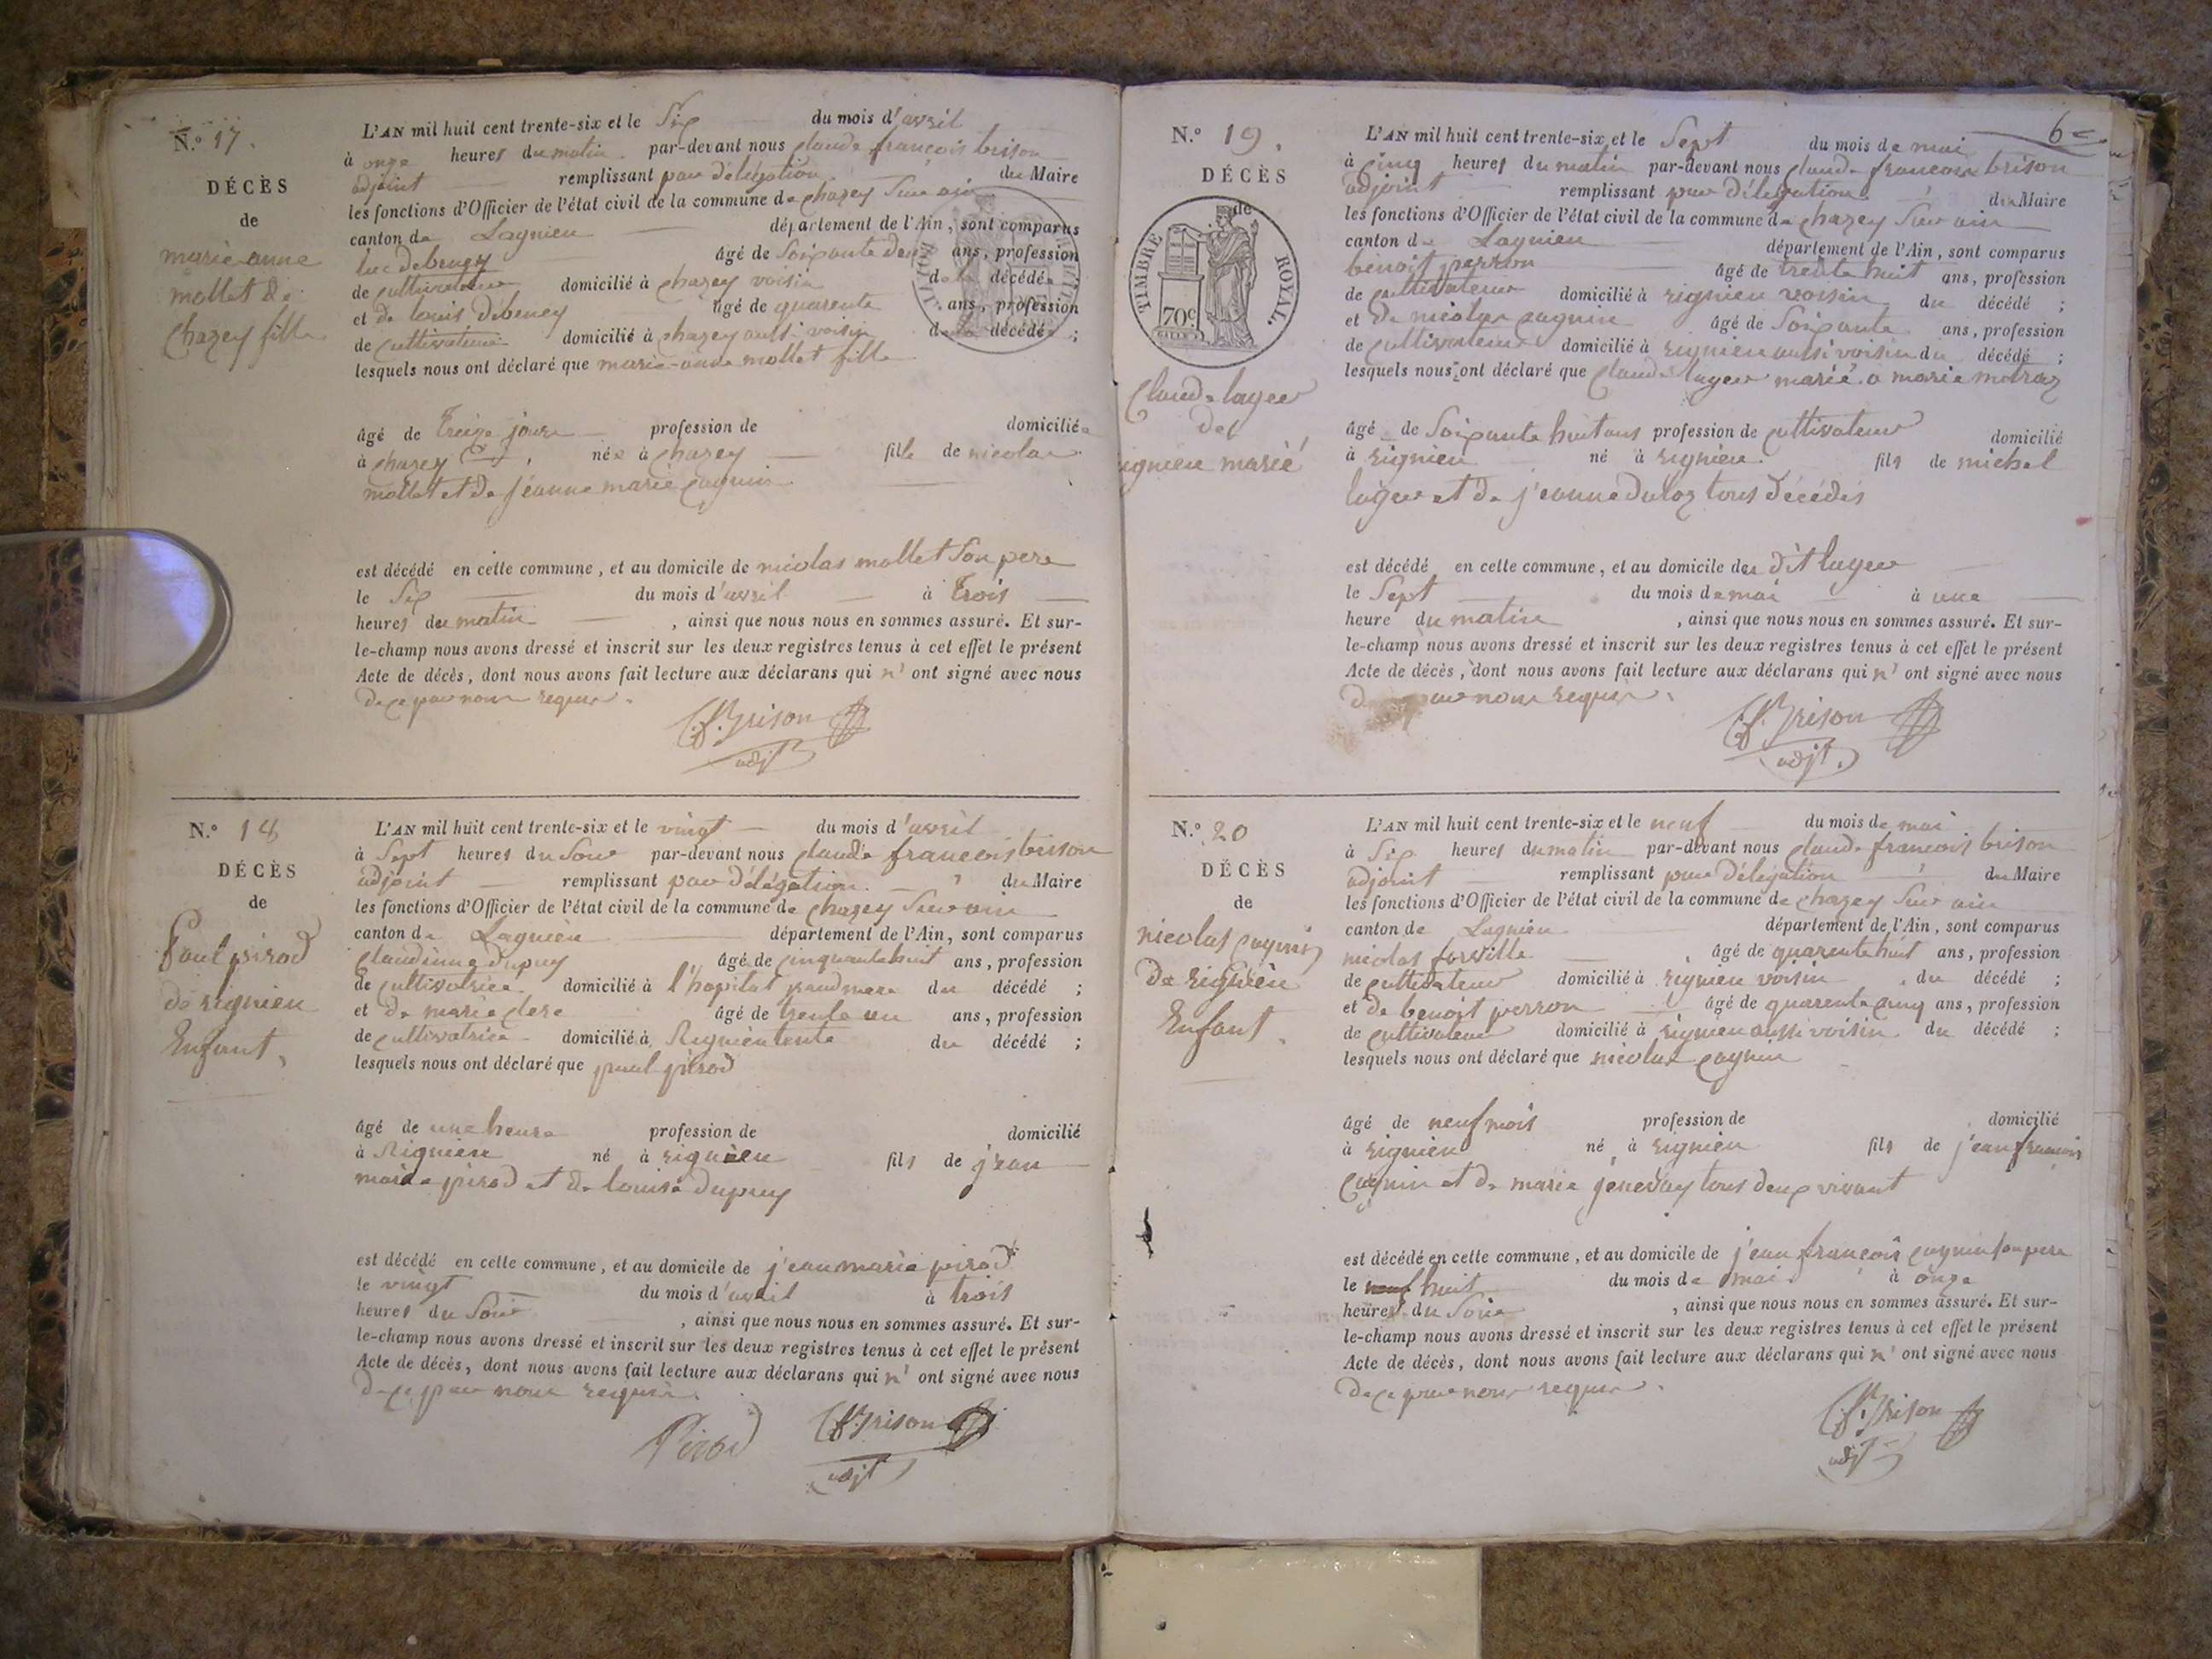 N.° 17.
DÉCÈS
de
marie anne
mollet de
Chazey fille
L'AN mil huit cent trente-six et le Six du mois d'avril
à onze heures du matin par-devant nous claude françois brison
adjoint remplissant par délégation du Maire
les fonctions d'Officier de l'état civil de la commune de chazey Sur ain
canton de Lagnieu département de l'Ain, sont comparus
luc debeney âgé de Soixante deux ans, profession
de cultivateur domicilié à chazey voisin de la décédée
et de louis debeney âgé de quarente ans, profession
de cultivateur domicilié à chazey aussi voisin de la décédée ;
lesquels nous ont déclaré que marie-anne mollet fille
âgé de treize jours profession de domiciliée
à chazey née à chazey fille de nicolas
mollet et de jeanne marie cagnin
est décédé en cette commune, et au domicile de nicolas mollet Son pere
le Six du mois d'avril à trois
heures du matin , ainsi que nous nous en sommes assuré. Et sur-
le-champ nous avons dressé et inscrit sur les deux registres tenus à cet effet le présent
Acte de décès, dont nous avons fait lecture aux déclarans qui n' ont signé avec nous
de ce par nous requis.
C. f. Brison
adjt
N.° 18
DÉCÈS
de
Paul pirod
de rignieu
Enfant,
L'AN mil huit cent trente-six et le vingt du mois d'avril
à Sept heures du Soir par-devant nous claude françois brison
adjoint remplissant par délégation du Maire
les fonctions d'Officier de l'état civil de la commune de chazey Sur ain
canton de Lagnieu département de l'Ain, sont comparus
claudinne dupuy âgé de cinquante huit ans, profession
de cultivatrice domicilié à l'hopital grand mere du décédé ;
et de marie clere âgé de trente un ans, profession
de cultivatrice domicilié à Rignieu tente du décédé ;
lesquels nous ont déclaré que paul pirod
âgé de une heure profession de domicilié
à Rignieu né à rignieu fils de jean
marie pirod et de louise dupuy
est décédé en cette commune, et au domicile de jean marie pirod
le vingt du mois d'avril à trois
heures du Soir , ainsi que nous nous en sommes assuré. Et sur-
le-champ nous avons dressé et inscrit sur les deux registres tenus à cet effet le présent
Acte de décès, dont nous avons fait lecture aux déclarans qui n' ont signé avec nous
de ce par nous requis.
Pirod C. f. Brison
adjt
6
N.° 19.
DÉCÈS
de
TIMBRE ROYAL.
70c
Claude layer
de
rignieu marié
L'AN mil huit cent trente-six et le Sept du mois de mai
à cinq heures du matin par-devant nous claude françois brison
adjoint remplissant par délégation du Maire
les fonctions d'Officier de l'état civil de la commune de chazey Sur ain
canton de Lagnieu département de l'Ain, sont comparus
benoit perron âgé de trente huit ans, profession
de cultivateur domicilié à rignieu voisin du décédé ;
et de nicolas cagnin âgé de Soixante ans, profession
de cultivateur domicilié à rignieu aussi voisin du décédé ;
lesquels nous ont déclaré que claude layer marié a marie
âgé de Soixante huit ans profession de cultivateur domicilié
à rignieu né à rignieu fils de michel
layer et de jeanne duloz tous décédés
est décédé en cette commune, et au domicile du dit layer
le Sept du mois de mai à une
heure du matin , ainsi que nous nous en sommes assuré. Et sur-
le-champ nous avons dressé et inscrit sur les deux registres tenus à cet effet le présent
Acte de décès, dont nous avons fait lecture aux déclarans qui n' ont signé avec nous
de ce par nous requis.
C. f. Brison
adjt.
N.° 20
DÉCÈS
de
nicolas cagnin
de rignieu
Enfant.
L'AN mil huit cent trente-six et le neuf du mois de mai
à Six heures du matin par-devant nous claude françois brison
adjoint remplissant par délégation du Maire
les fonctions d'Officier de l'état civil de la commune de chazey Sur ain
canton de Lagnieu département de l'Ain, sont comparus
nicolas âgé de quarente huit ans, profession
de cultivateur domicilié à rignieu voisin du décédé ;
et de benoit perron âgé de quarente cinq ans, profession
de cultivateur domicilié à rignieu aussi voisin du décédé ;
lesquels nous ont déclaré que nicolas cagnin
âgé de neuf mois profession de domicilié
à rignieu né à rignieu fils de jean françois
cagnin et de marie genevay tous deux vivant
est décédé en cette commune, et au domicile de jean françois cagnin son pere
le neuf huit du mois de mai à onze
heures du Soir , ainsi que nous nous en sommes assuré. Et sur-
le-champ nous avons dressé et inscrit sur les deux registres tenus à cet effet le présent
Acte de décès, dont nous avons fait lecture aux déclarans qui n' ont signé avec nous
de ce par nous requis.
C. f. Brison
adjt